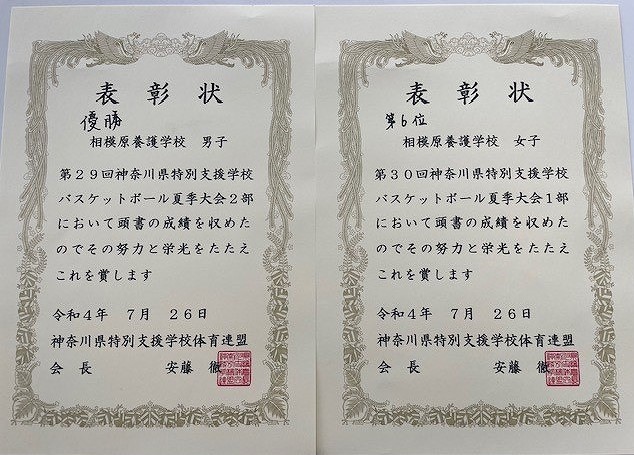 表彰状
優勝
相模原養護学校 男子
第29回神奈川県特別支援学校
バスケットボール夏季大会2部
において頭書の成績を収めた
のでその努力と栄光をたたえ
これを賞します
令和4年 7月 26日
神奈川県特別支援学校体育連盟
会長 安藤 徹
表彰状
第6位
相模原養護学校 女子
第30回神奈川県特別支援学校
バスケットボール夏季大会1部
において頭書の成績を収めた
のでその努力と栄光をたたえ
これを賞します
令和4年 7月 26日
神奈川県特別支援学校体育連盟
会長 安藤 徹